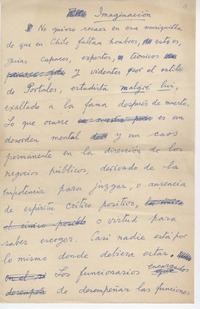 Imaginación
No quiero recaer en una
de que en Chile faltan hombres, esto es,
guías capaces, expertos, técnicos
y videntes por el estilo
de Portales, estadista malgré lui,
exaltado a la fama después de muerto.
Lo que ocurre es un
desorden mental y un caos
permanente en la dirección de los
negocios públicos, debido a la
impotencia para juzgar, o ausencia
de espíritu crítico positivo,
o virtud para
saber escoger. Casi nadie está por
lo mismo donde debiera estar,
Los funcionarios encargados
de desempeñar las funciones